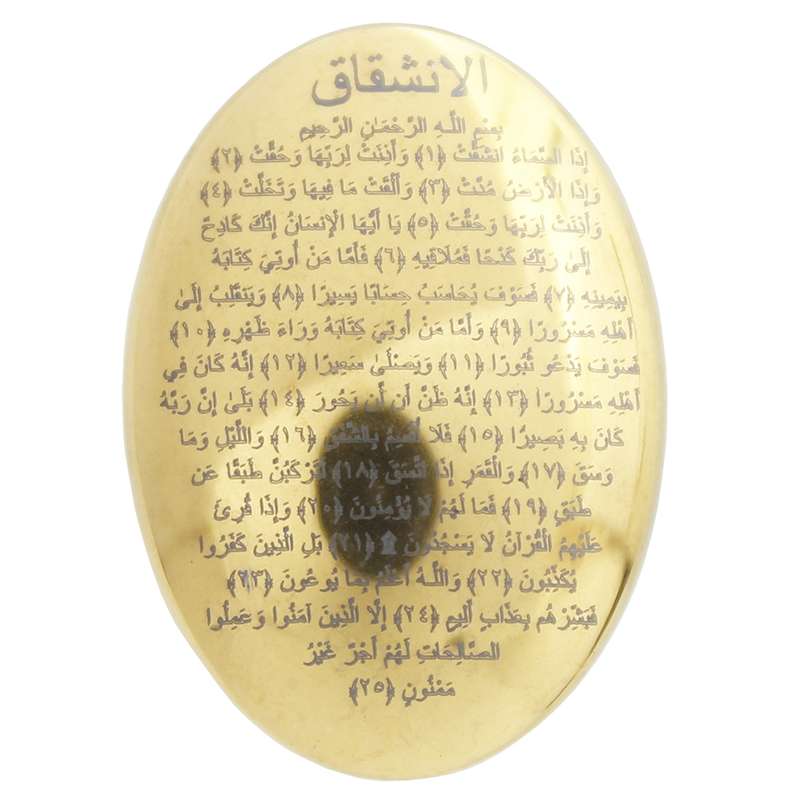 الانشقاق
بِسْمِ اللَّـهِ الرَّحْمَـٰنِ الرَّحِيمِ
إِذَا السَّمَاءُ انشَقَّتْ ﴿١﴾ وَأَذِنَتْ لِرَبِّهَا وَحُقَّتْ ﴿٢﴾
وَإِذَا الْأَرْضُ مُدَّتْ ﴿٣﴾ وَأَلْقَتْ مَا فِيهَا وَتَخَلَّتْ ﴿٤﴾
وَأَذِنَتْ لِرَبِّهَا وَحُقَّتْ ﴿٥﴾ يَا أَيُّهَا الْإِنسَانُ إِنَّكَ كَادِحٌ
إِلَىٰ رَبِّكَ كَدْحًا فَمُلَاقِيهِ ﴿٦﴾ فَأَمَّا مَنْ أُوتِيَ كِتَابَهُ
بِيَمِينِهِ ﴿٧﴾ فَسَوْفَ يُحَاسَبُ حِسَابًا يَسِيرًا ﴿٨﴾ وَيَنقَلِبُ إِلَىٰ
أَهْلِهِ مَسْرُورًا ﴿٩﴾ وَأَمَّا مَنْ أُوتِيَ كِتَابَهُ وَرَاءَ ظَهْرِهِ ﴿١٠﴾
فَسَوْفَ يَدْعُو ثُبُورًا ﴿١١﴾ وَيَصْلَىٰ سَعِيرًا ﴿١٢﴾ إِنَّهُ كَانَ فِي
أَهْلِهِ مَسْرُورًا ﴿١٣﴾ إِنَّهُ ظَنَّ أَن لَّن يَحُورَ ﴿١٤﴾ بَلَىٰ إِنَّ رَبَّهُ
كَانَ بِهِ بَصِيرًا ﴿١٥﴾ فَلَا أُقْسِمُ بِالشَّفَقِ ﴿١٦﴾ وَاللَّيْلِ وَمَا
وَسَقَ ﴿١٧﴾ وَالْقَمَرِ إِذَا اتَّسَقَ ﴿١٨﴾ لَتَرْكَبُنَّ طَبَقًا عَن
طَبَقٍ ﴿١٩﴾ فَمَا لَهُمْ لَا يُؤْمِنُونَ ﴿٢٠﴾ وَإِذَا قُرِئَ
عَلَيْهِمُ الْقُرْآنُ لَا يَسْجُدُونَ ۩ ﴿٢١﴾ بَلِ الَّذِينَ كَفَرُوا
يُكَذِّبُونَ ﴿٢٢﴾ وَاللَّـهُ أَعْلَمُ بِمَا يُوعُونَ ﴿٢٣﴾
فَبَشِّرْهُم بِعَذَابٍ أَلِيمٍ ﴿٢٤﴾ إِلَّا الَّذِينَ آمَنُوا وَعَمِلُوا
الصَّالِحَاتِ لَهُمْ أَجْرٌ غَيْرُ
مَمْنُونٍ ﴿٢٥﴾